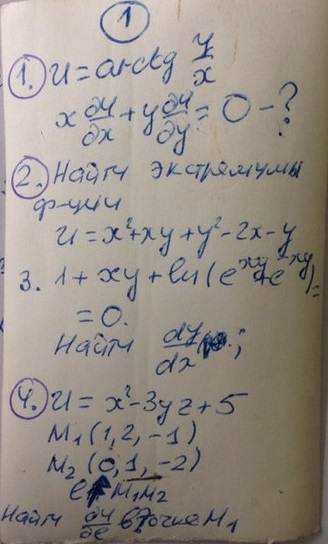 1
1. U = arctg y/x
x ∂u/∂x + y ∂u/∂y = 0 - ?
2. Найти экстремумы
ф-ции
U = x² + xy + y² - 2x - y
3. 1 + xy + ln(e^xy + e^-xy) =
= 0.
Найти dy/dx ;
4. U = x² - 3yz + 5
M₁(1, 2, -1)
M₂(0, 1, -2)
M₁M₂
Найти ∂u/∂e в точке M₁